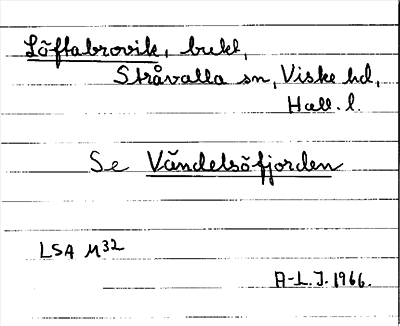 Löftabrovik, bukt,
Stråvalla sn, Viske hd,
Hall. l.
Se Vändelsöfjorden
LSA M32
A-L.J. 1966.